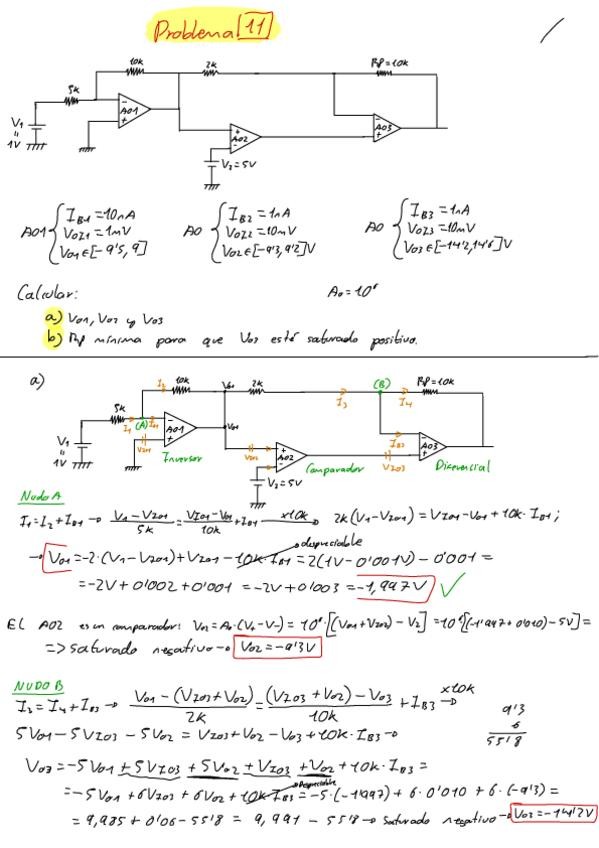 Problema 11
10k
2k
RP=10k
5k
V1
"
1V
-
+
AO1
+
-
AO2
V2=5V
-
+
AO3
AO1 { IB1=10nA
VOZ1=1mV
VO1∈[-9'5, 9]
AO { IB2=1nA
VOZ2=10mV
VO2∈[-9'3, 9'2]V
AO { IB3=1nA
VOZ3=10mV
VO3∈[-14'2, 14'6]V
Calcular:
Ao=10⁵
a) VO1, VO2 y VO3
b) RP mínima para que VO3 esté saturado positivo.
a)
I2
10k
VO1
2k
I3
(B)
I4
RP=10k
5k
I1
(A)
IB1
V1
"
1V
VZO1
AO1
Inversor
VO1
VZO2
AO2
V2=5V
Comparador
IB3
VZO3
AO3
Diferencial
Nudo A
I1=I2+IB1 → V1-VZO1/5k = VZO1-VO1/10k + IB1 ×10k → 2k(V1-VZO1)=VZO1-VO1+10k·IB1;
despreciable
→ VO1=-2·(V1-VZO1)+VZO1-10k·IB1=2(1V-0'001V)-0'001=
=-2V+0'002+0'001=-2V+0'003=-1,997V ✓
El AO2 es un comparador: VO2=Ao·(V+-V-)=10⁵·[(VO1+VZO2)-V2]=10⁵[(-1'997+0'010)-5V]=
=> saturado negativo → VO2=-9'3V
NUDO B
I3=I4+IB3 → VO1-(VZO3+VO2)/2k = (VZO3+VO2)-VO3/10k + IB3 ×10k →
5VO1-5VZO3-5VO2=VZO3+VO2-VO3+10k·IB3→
9'3
6
55'8
VO3=-5VO1+5VZO3+5VO2+VZO3+VO2+10k·IB3=
Despreciable
=-5VO1+6VZO3+6VO2+10k·IB3=-5·(-1'997)+6·0'010+6·(-9'3)=
=9,985+0'06-55'8=9,991-55'8→ saturado negativo → VO3=-14'2V